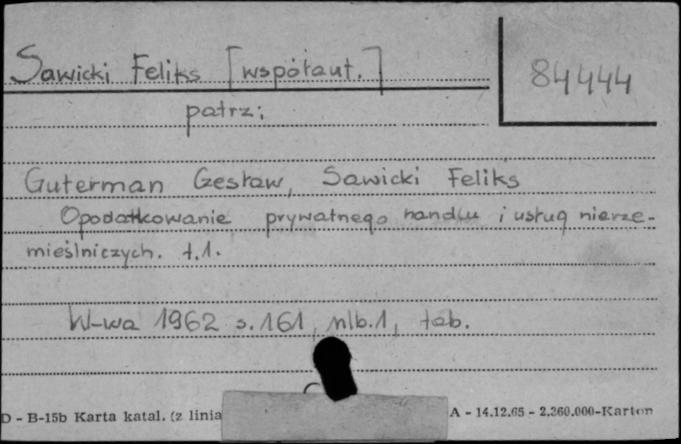 Sawicki Feliks [współaut.]
84444
patrz:
Guterman Czesław, Sawicki Feliks
Opodatkowanie prywatnego handlu i usług nierze-
mieślniczych. t.1.
W-wa 1962 s.161, nlb.1, tab.
D - B-15b Karta katal. (z linia
A - 14.12.65 - 2.360.000-Karton